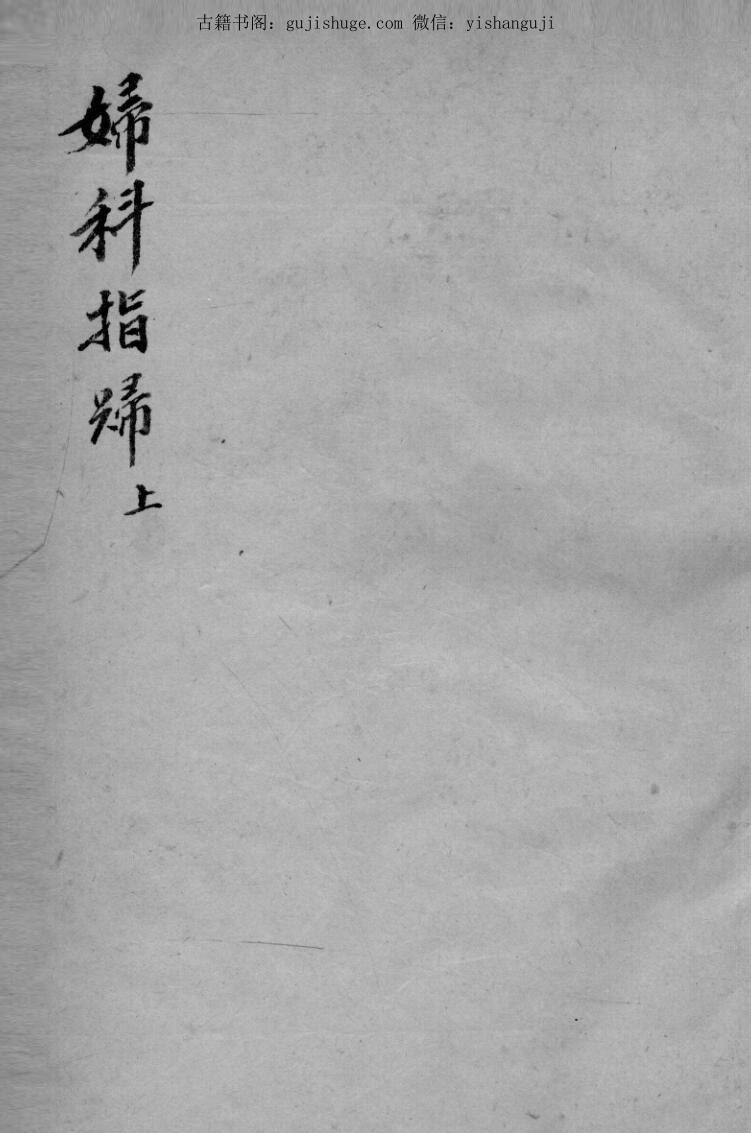 古籍书阁: gujishuge.com 微信: yishanguji
婦科指歸上